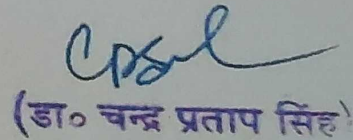 (डा० चन्द्र प्रताप सिंह)